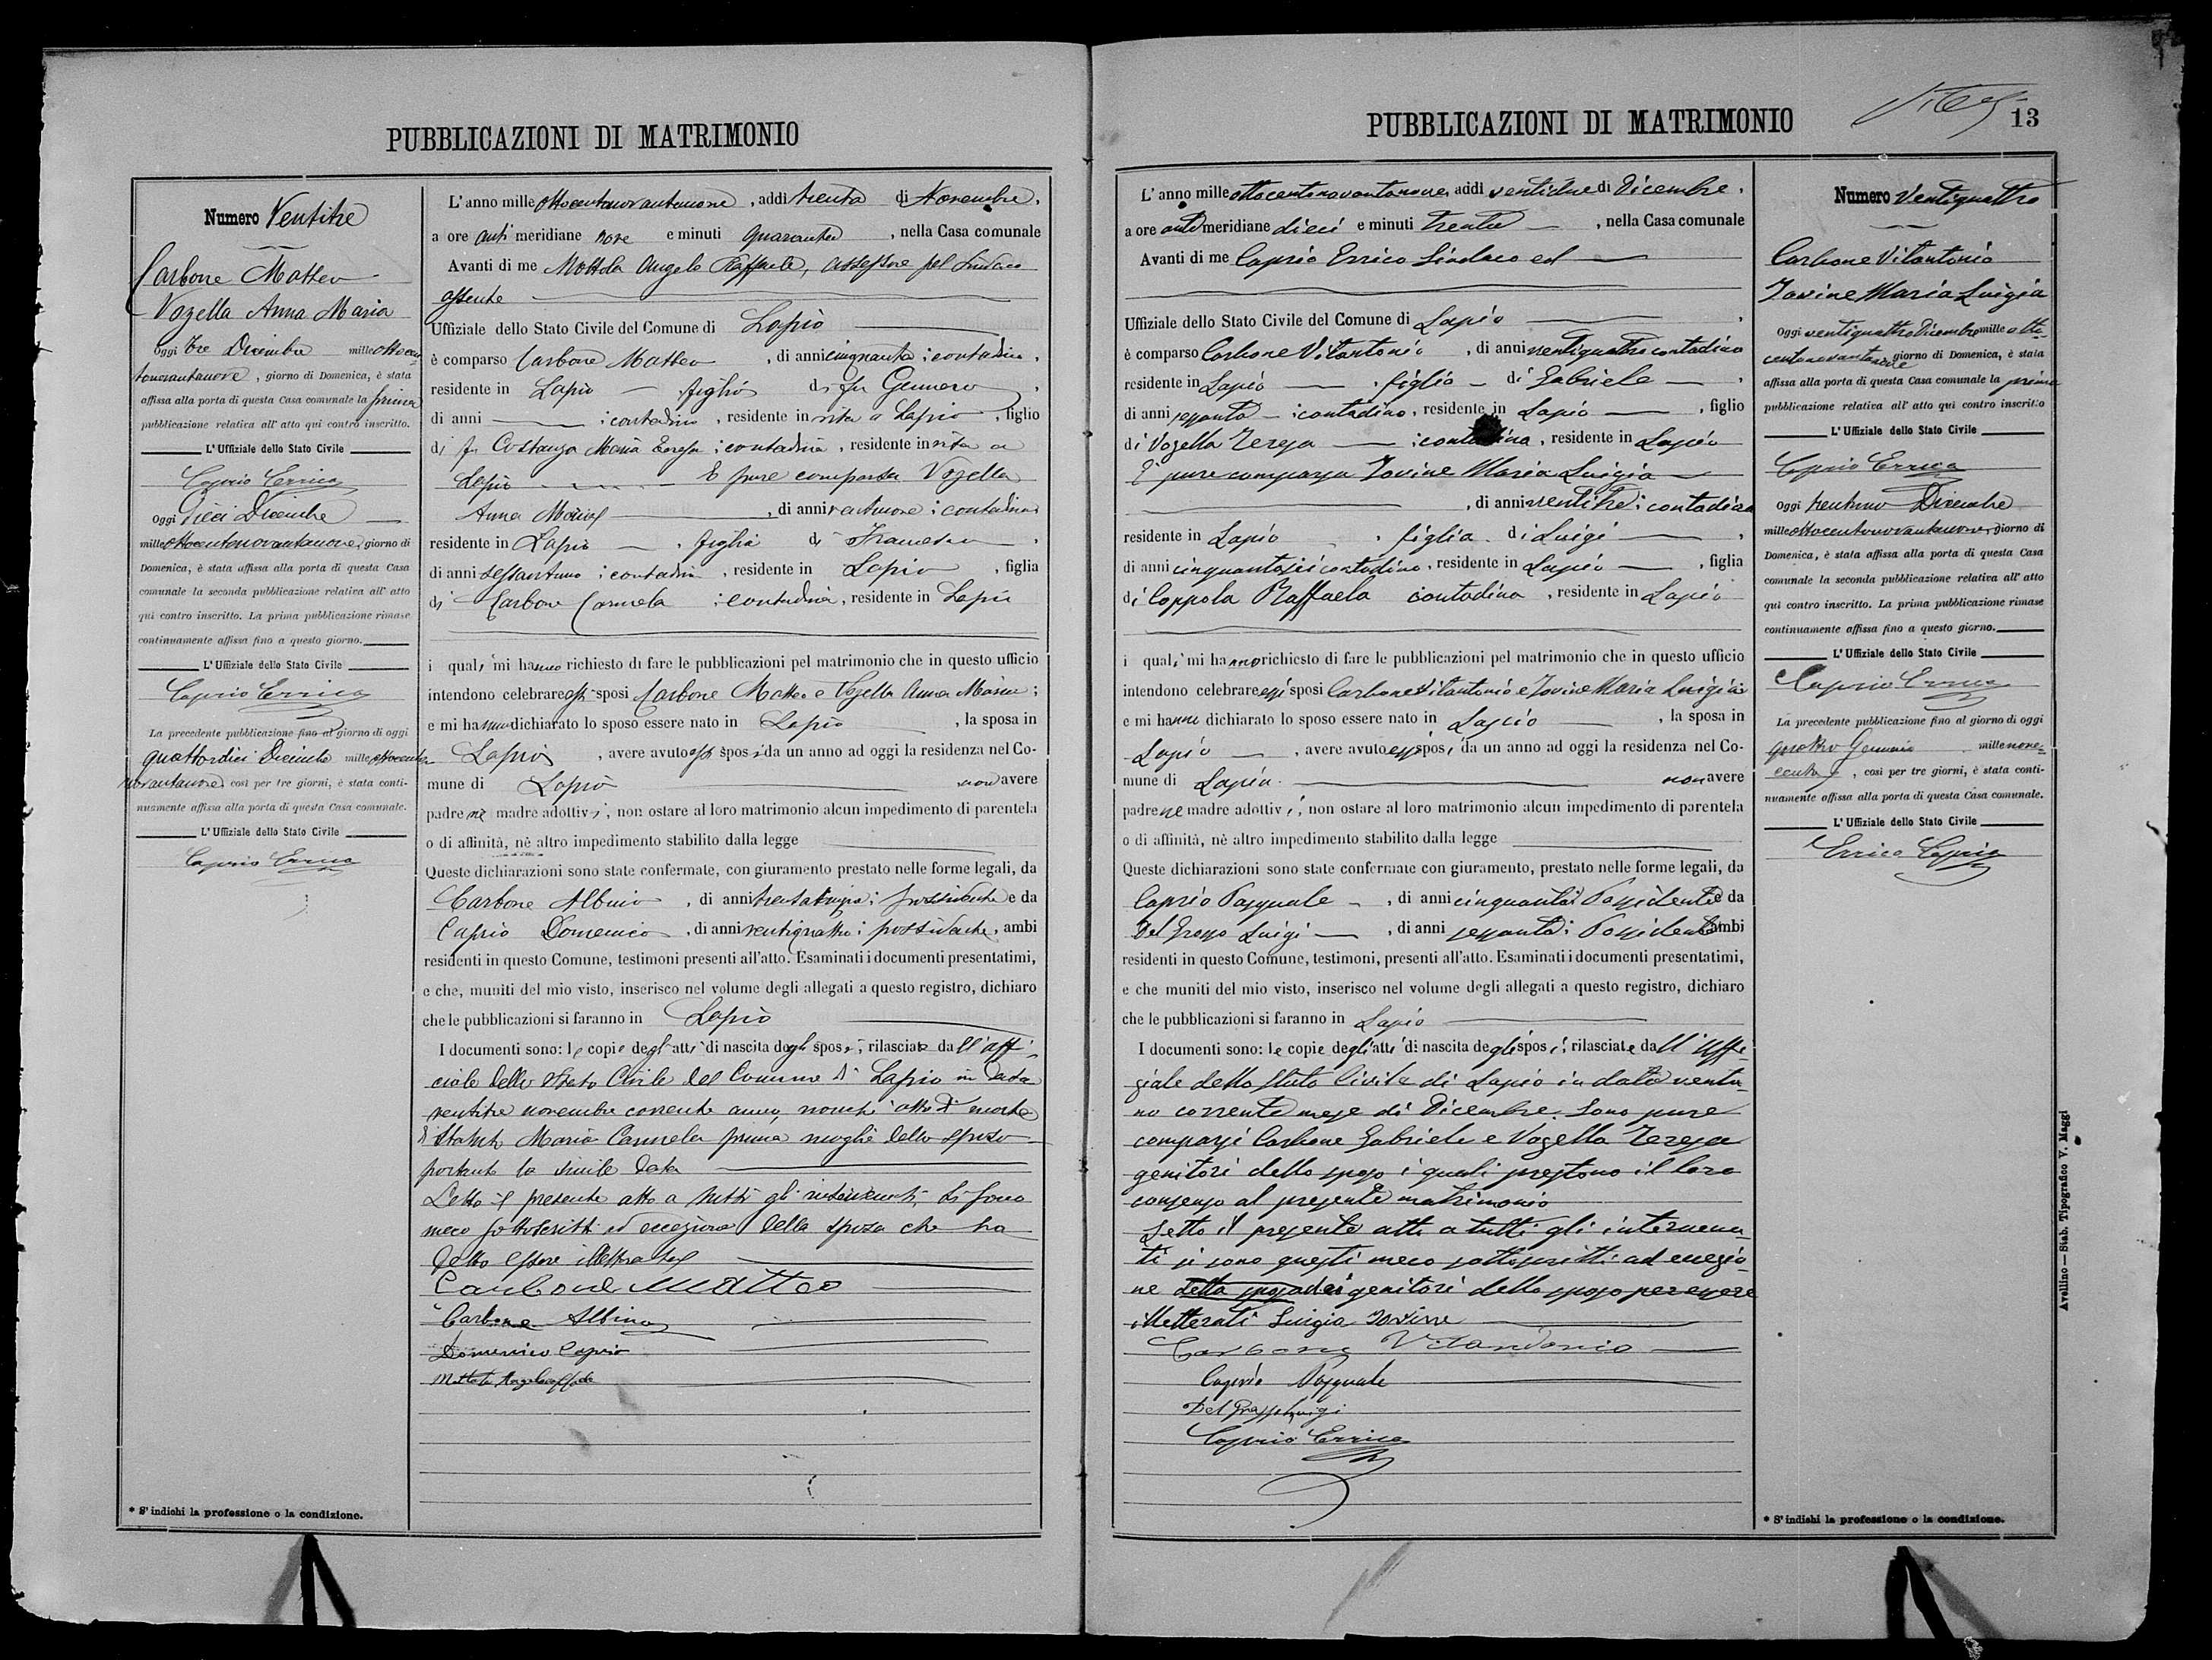 PUBBLICAZIONI DI MATRIMONIO
Numero Ventitre
Carbone Matteo
Vozella Anna Maria
Oggi tre Dicembre mille ottocen
tonovantanove, giorno di Domenica, è stata
affissa alla porta di questa Casa comunale la prima
pubblicazione relativa all' atto qui contro inscritto.
L' Uffiziale dello Stato Civile
Caprio Errico
Oggi Dieci Dicembre
mille ottocentonovantanove, giorno di
Domenica, è stata affissa alla porta di questa Casa
comunale la seconda pubblicazione relativa all' atto
qui contro inscritto. La prima pubblicazione rimase
continuamente affissa fino a questo giorno.
L' Uffiziale dello Stato Civile
Caprio Errico
La precedente pubblicazione fino al giorno di oggi
quattordici Dicembre mille ottocento
novantanove, così per tre giorni, è stata conti-
nuamente affissa alla porta di questa Casa comunale.
L' Uffiziale dello Stato Civile
Caprio Errico
* S' indichi la professione o la condizione.
L' anno mille ottocentonovantanove, addì trenta di Novembre,
a ore anti meridiane nove e minuti quaranta, nella Casa comunale
Avanti di me Mottola Angelo Raffaele, assessore pel Sindaco
assente
Uffiziale dello Stato Civile del Comune di Lapio
è comparso Carbone Matteo, di anni cinquanta; contadino,
residente in Lapio, figlio di fu Gennaro,
di anni ; contadino, residente in vita a Lapio, figlio
di fu Costanza Maria Teresa; contadina, residente in vita a
Lapio E pure comparsa Vozella
Anna Maria, di anni ventinove; contadina
residente in Lapio, figlia di Francesco,
di anni sessantuno; contadino, residente in Lapio, figlia
di Carbone Carmela; contadina, residente in Lapio
i quali mi hanno richiesto di fare le pubblicazioni pel matrimonio che in questo ufficio
intendono celebrare essi sposi Carbone Matteo e Vozella Anna Maria;
e mi hanno dichiarato lo sposo essere nato in Lapio, la sposa in
Lapio, avere avuto essi sposi da un anno ad oggi la residenza nel Co-
mune di Lapio non avere
padre nè madre adottivi, non ostare al loro matrimonio alcun impedimento di parentela
o di affinità, nè altro impedimento stabilito dalla legge
Queste dichiarazioni sono state confermate, con giuramento prestato nelle forme legali, da
Carbone Albino, di anni possidente e da
Caprio Domenico, di anni ventiquattro; possidente, ambi
residenti in questo Comune, testimoni presenti all'atto. Esaminati i documenti presentatimi,
e che, muniti del mio visto, inserisco nel volume degli allegati a questo registro, dichiaro
che le pubblicazioni si faranno in Lapio
I documenti sono: le copie degli atti di nascita degli sposi, rilasciate dall'uffi-
ciale dello Stato Civile del Comune di Lapio in data
ventitre novembre corrente anno, nonchè atto di morte
di Maria Carmela prima moglie dello sposo
portante la simile data
Letto il presente atto a tutti gl'intervenuti, si sono
meco sottoscritti ad eccezione della sposa che ha
detto essere illetterata
Carbone Matteo
Carbone Albino
Domenico Caprio
Mottola Angeloraffaele
PUBBLICAZIONI DI MATRIMONIO
13
L' anno mille ottocentonovantanove, addì ventidue di Dicembre,
a ore anti meridiane dieci e minuti trenta, nella Casa comunale
Avanti di me Caprio Errico Sindaco ed
Uffiziale dello Stato Civile del Comune di Lapio,
è comparso Carbone Vitantonio, di anni ventiquattro contadino
residente in Lapio, figlio di Gabriele,
di anni sessanta; contadino, residente in Lapio, figlio
di Vozella Teresa; contadina, residente in Lapio
È pure comparsa Iovine Maria Luigia
, di anni ventitre; contadina
residente in Lapio, figlia di Luigi,
di anni cinquantasei contadino, residente in Lapio, figlia
di Coppola Raffaela contadina, residente in Lapio
i quali mi hanno richiesto di fare le pubblicazioni pel matrimonio che in questo ufficio
intendono celebrare essi sposi Carbone Vitantonio e Iovine Maria Luigia;
e mi hanno dichiarato lo sposo essere nato in Lapio, la sposa in
Lapio, avere avuto essi sposi da un anno ad oggi la residenza nel Co-
mune di Lapio. non avere
padre nè madre adottivi, non ostare al loro matrimonio alcun impedimento di parentela
o di affinità, nè altro impedimento stabilito dalla legge
Queste dichiarazioni sono state confermate con giuramento, prestato nelle forme legali, da
Caprio Pasquale, di anni cinquanta; Possidente e da
Del Grosso Luigi, di anni sessanta; Possidente ambi
residenti in questo Comune, testimoni, presenti all'atto. Esaminati i documenti presentatimi,
e che muniti del mio visto, inserisco nel volume degli allegati a questo registro, dichiaro
che le pubblicazioni si faranno in Lapio
I documenti sono: le copie degli atti di nascita degli sposi, rilasciate dall'uffi-
ziale dello Stato Civile di Lapio in data ventu-
no corrente mese di Dicembre. Sono pure
comparsi Carbone Gabriele e Vozella Teresa
genitori dello sposo i quali prestano il loro
consenso al presente matrimonio
Letto il presente atto a tutti gli intervenu-
ti si sono questi meco sottoscritti ad eccezio-
ne della sposa dei genitori dello sposo per essere
illetterati Luigia Iovine
Carbone Vitandonio
Caprio Pasquale
Del Grosso Luigi
Caprio Errico
Numero Ventiquattro
Carbone Vitantonio
Iovine Maria Luigia
Oggi ventiquattro Dicembre mille otto-
centonovantanove giorno di Domenica, è stata
affissa alla porta di questa Casa comunale la prima
pubblicazione relativa all' atto qui contro inscritto
L' Uffiziale dello Stato Civile
Caprio Errico
Oggi trentuno Dicembre
mille ottocentonovantanove, giorno di
Domenica, è stata affissa alla porta di questa Casa
comunale la seconda pubblicazione relativa all' atto
qui contro inscritto. La prima pubblicazione rimase
continuamente affissa fino a questo giorno.
L' Uffiziale dello Stato Civile
Caprio Errico
La precedente pubblicazione fino al giorno di oggi
quattro Gennaio mille nove-
cento, così per tre giorni, è stata conti-
nuamente affissa alla porta di questa Casa comunale.
L' Uffiziale dello Stato Civile
Errico Caprio
* S' indichi la professione o la condizione.
Avellino — Stab. Tipografico V. Maggi